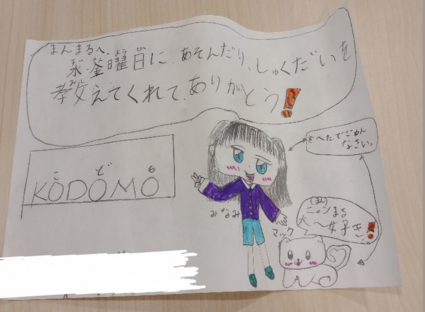 まんまるへ、
水、金曜日に あそんだり、しゅくだいを
教えてくれて、ありがとう!
こ ど も
KODOMO
※へたでごめん
なさい。
みなみ
マック
大〜好き!